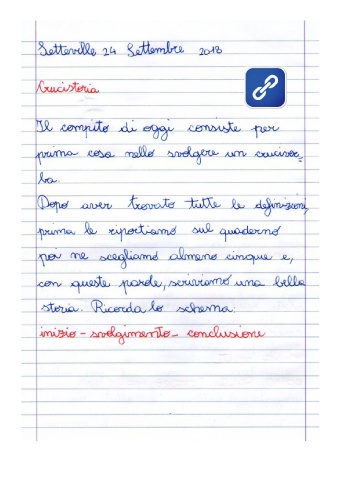 Setteville 24 Settembre 2018
Crucistoria
Il compito di oggi consiste per
prima cosa nello svolgere un cruciver=
ba.
Dopo aver trovato tutte le definizioni,
prima le riportiamo sul quaderno
poi ne scegliamo almeno cinque e,
con queste parole, scriviamo una bella
storia. Ricorda lo schema:
inizio - svolgimento - conclusione